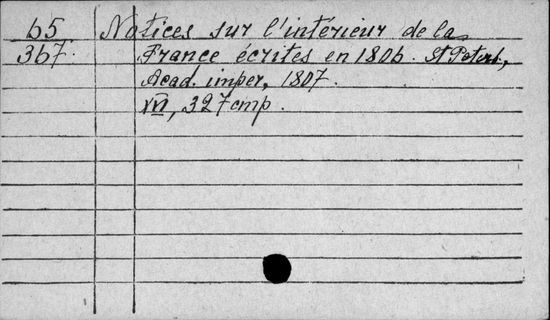 65 Notices sur l'intérieur de la
367. France écrites en 1806. St Petersb,
Acad. imper, 1807.
VII, 327 cmp.